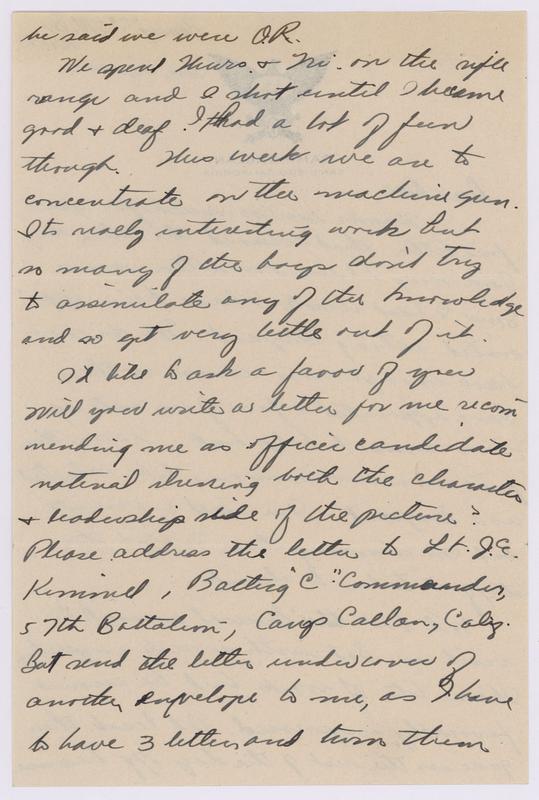 he said we were O.K.
We spend Thurs. & Fri. on the rifle
range and I shot until I became
good & deaf. I had a lot of fun
though. This week we are to
concentrate on the machine gun.
Its really interesting work but
so many of the boys don't try
to assimilate any of the knowledge
and so get very little out of it.
I'd like to ask a favor of you
Will you write a letter for me recom
mending me as officer candidate
material stressing both the character
& leadership side of the picture?
Please address the letter to Lt. J.C.
Kimmel, Battery "C" Commander,
57th Battalion, Camp Callan, Calif.
But send the letter under cover of
another envelope to me, as I have
to have 3 letters and turn them